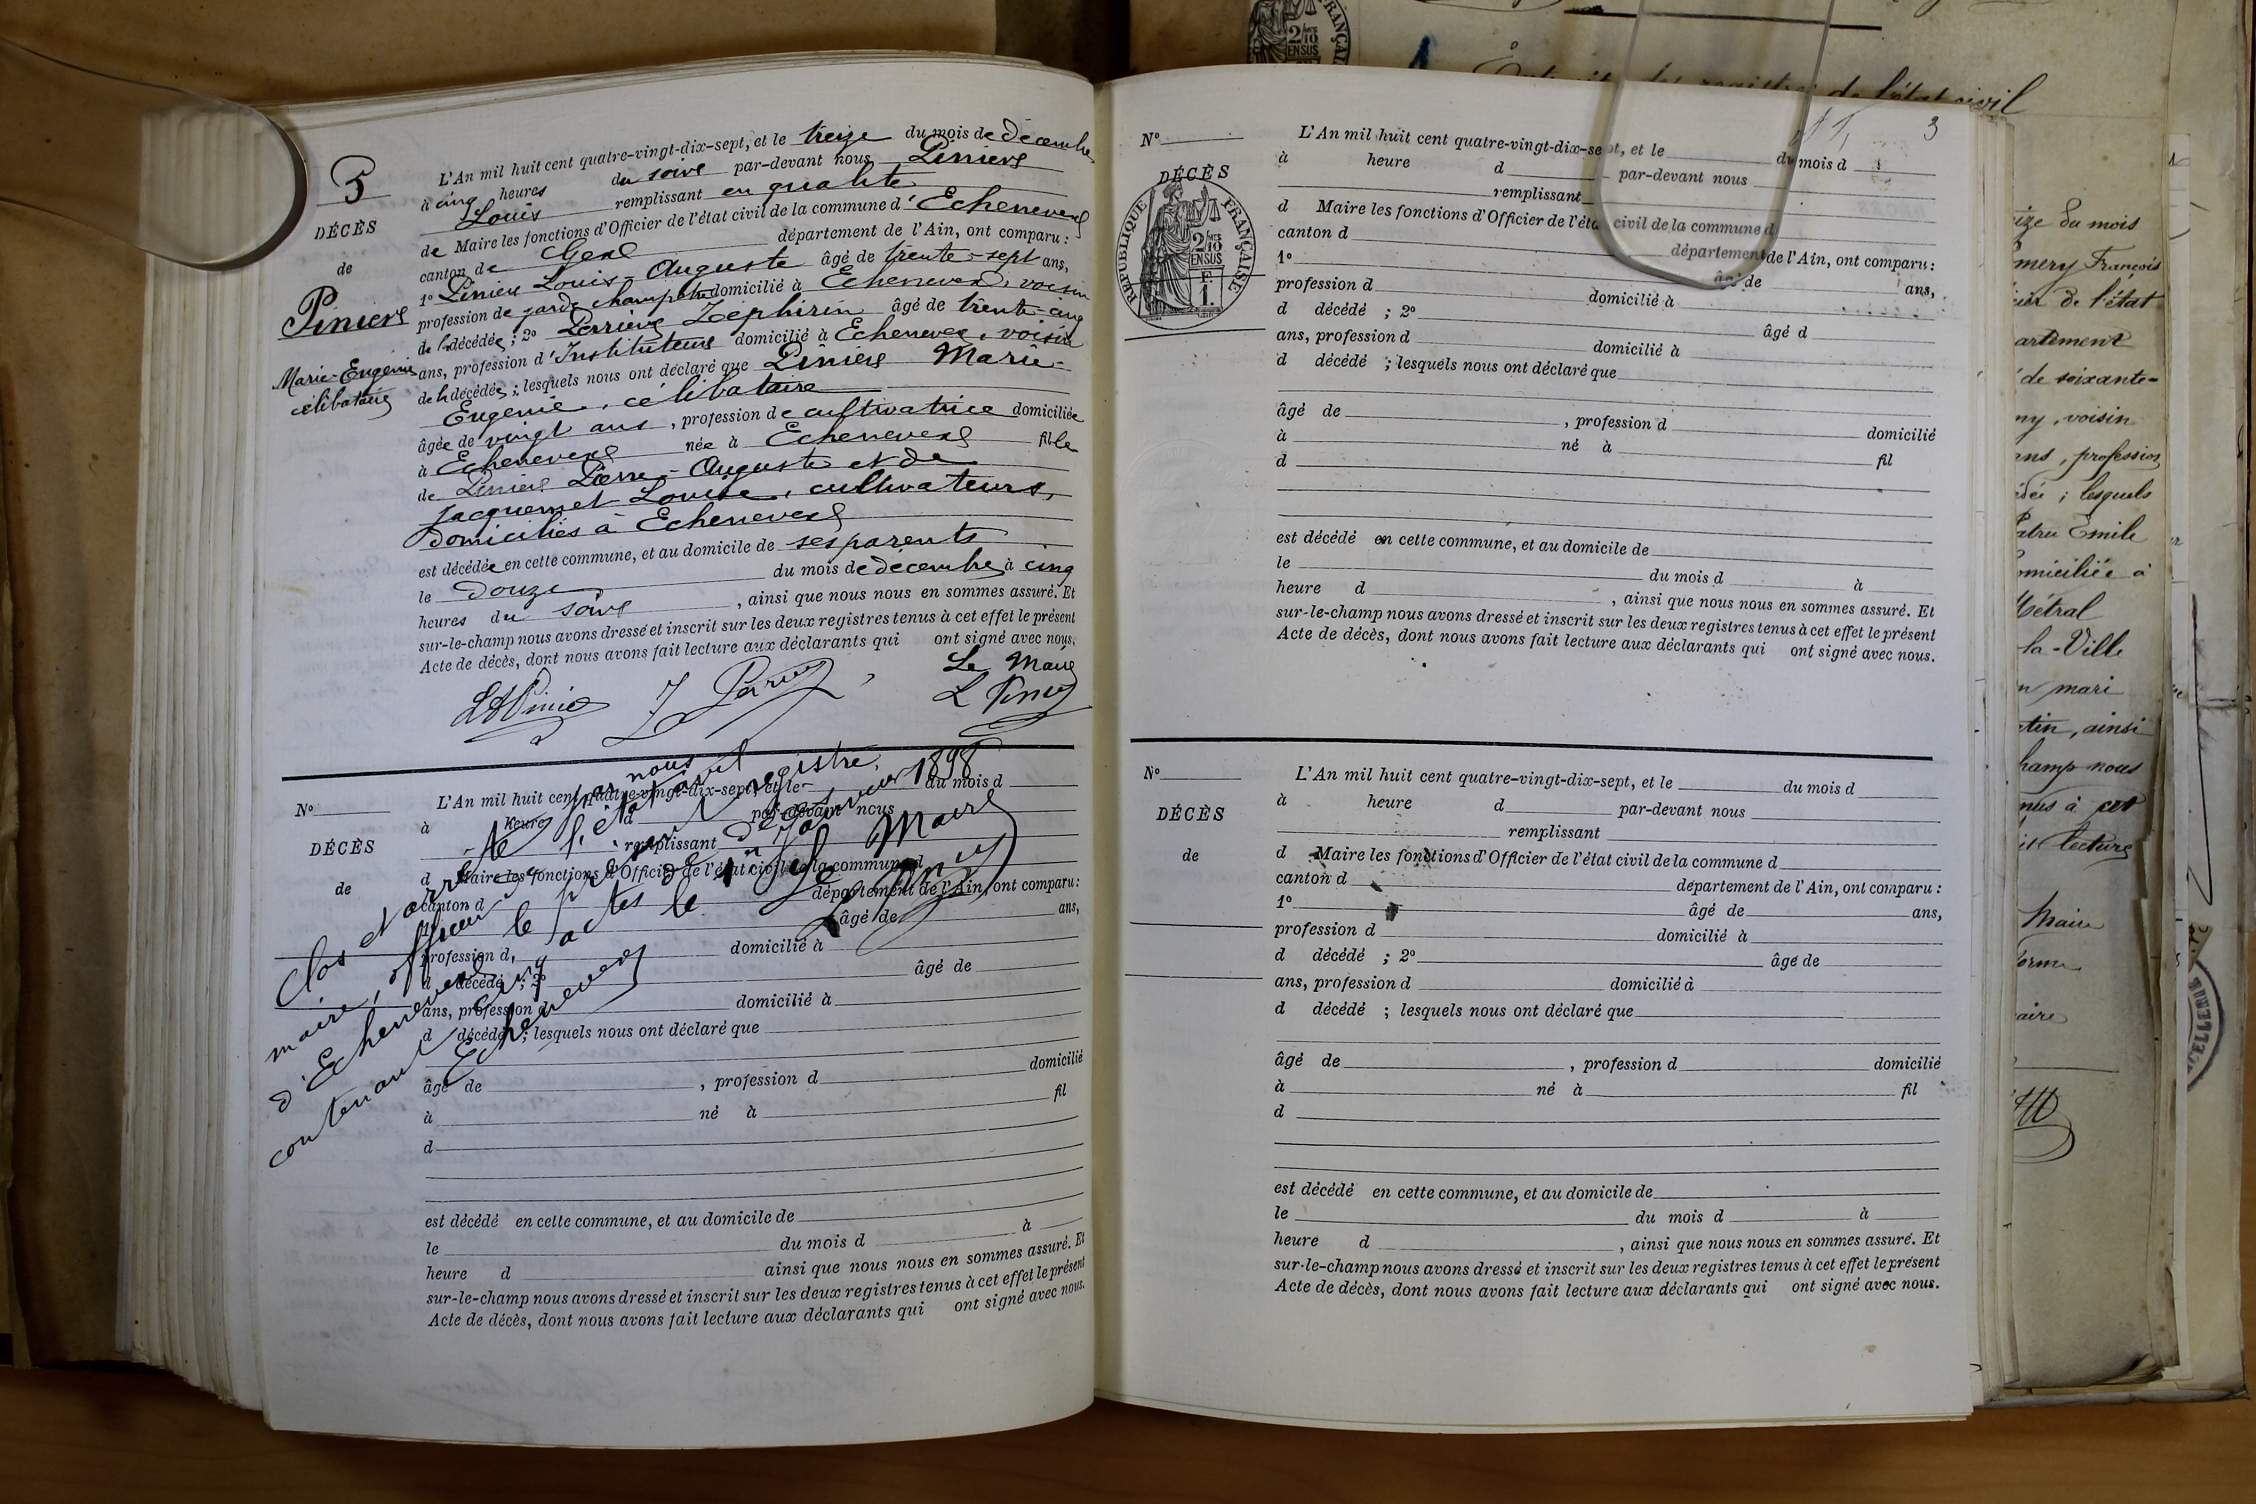 5
DÉCÈS
de
Piniers
Marie-Eugénie
célibataire
L'An mil huit cent quatre-vingt-dix-sept, et le treize du mois de décembre
à cinq heures du soire par-devant nous Piniers
Louis remplissant en qualité
de Maire les fonctions d'Officier de l'état civil de la commune d'Echenevex
canton de Gex département de l'Ain, ont comparu :
1º Pinier Louis-Auguste âgé de trente-sept ans,
profession de garde champêtre domicilié à Echenevex, voisin
de la décédée ; 2º Perriere Zéphirin âgé de trente-cinq
ans, profession d'Instituteur domicilié à Echenevex, voisin
de la décédée ; lesquels nous ont déclaré que Piniers Marie-
Eugenie, célibataire
âgée de vingt ans, profession de cultivatrice domiciliée
à Echenevex née à Echenevex fille
de Piniers Pierre-Auguste et de
Jacquemet Louise, cultivateurs,
domiciliés à Echenevex
est décédée en cette commune, et au domicile de ses parents
le Douze du mois de décembre à cinq
heures du soire, ainsi que nous nous en sommes assuré. Et
sur-le-champ nous avons dressé et inscrit sur les deux registres tenus à cet effet le présent
Acte de décès, dont nous avons fait lecture aux déclarants qui ont signé avec nous.
Le Maire
Clos et arrêté par nous
maire, officier de l'état civil
d'Echenevex le présent registre,
contenant cinq actes le 1er Janvier 1898
Echenevex
Le Maire
Nº
DÉCÈS
de
L'An mil huit cent quatre-vingt-dix-sept, et le du mois d
à heure d par-devant nous
remplissant
d Maire les fonctions d'Officier de l'état civil de la commune d
canton d département de l'Ain, ont comparu :
1º âgé de ans,
profession d domicilié à
d décédé ; 2º âgé de
ans, profession d domicilié à
d décédé ; lesquels nous ont déclaré que
âgé de , profession d domicilié
à né à fil
d
est décédé en cette commune, et au domicile de
le du mois d à
heure d ainsi que nous nous en sommes assuré. Et
sur-le-champ nous avons dressé et inscrit sur les deux registres tenus à cet effet le présent
Acte de décès, dont nous avons fait lecture aux déclarants qui ont signé avec nous.
3
Nº
DÉCÈS
RÉPUBLIQUE FRANÇAISE
2/10
EN SUS
F.
1.
L'An mil huit cent quatre-vingt-dix-sept, et le du mois d
à heure d par-devant nous
remplissant
d Maire les fonctions d'Officier de l'état civil de la commune d
canton d département de l'Ain, ont comparu :
1º âgé de ans,
profession d domicilié à
d décédé ; 2º âgé d
ans, profession d domicilié à
d décédé ; lesquels nous ont déclaré que
âgé de , profession d domicilié
à né à fil
d
est décédé en cette commune, et au domicile de
le du mois d à
heure d , ainsi que nous nous en sommes assuré. Et
sur-le-champ nous avons dressé et inscrit sur les deux registres tenus à cet effet le présent
Acte de décès, dont nous avons fait lecture aux déclarants qui ont signé avec nous.
Nº
DÉCÈS
de
L'An mil huit cent quatre-vingt-dix-sept, et le du mois d
à heure d par-devant nous
remplissant
d Maire les fonctions d'Officier de l'état civil de la commune d
canton d département de l'Ain, ont comparu :
1º âgé de ans,
profession d domicilié à
d décédé ; 2º âgé de
ans, profession d domicilié à
d décédé ; lesquels nous ont déclaré que
âgé de , profession d domicilié
à né à fil
d
est décédé en cette commune, et au domicile de
le du mois d à
heure d , ainsi que nous nous en sommes assuré. Et
sur-le-champ nous avons dressé et inscrit sur les deux registres tenus à cet effet le présent
Acte de décès, dont nous avons fait lecture aux déclarants qui ont signé avec nous.
2/10
EN SUS
de l'état civil
du mois
François
de l'état
de soixante-
voisin
profession
; lesquels
Emile
à
Métral
la-Ville
mari
ainsi
nous
à cet
lecture
Maire